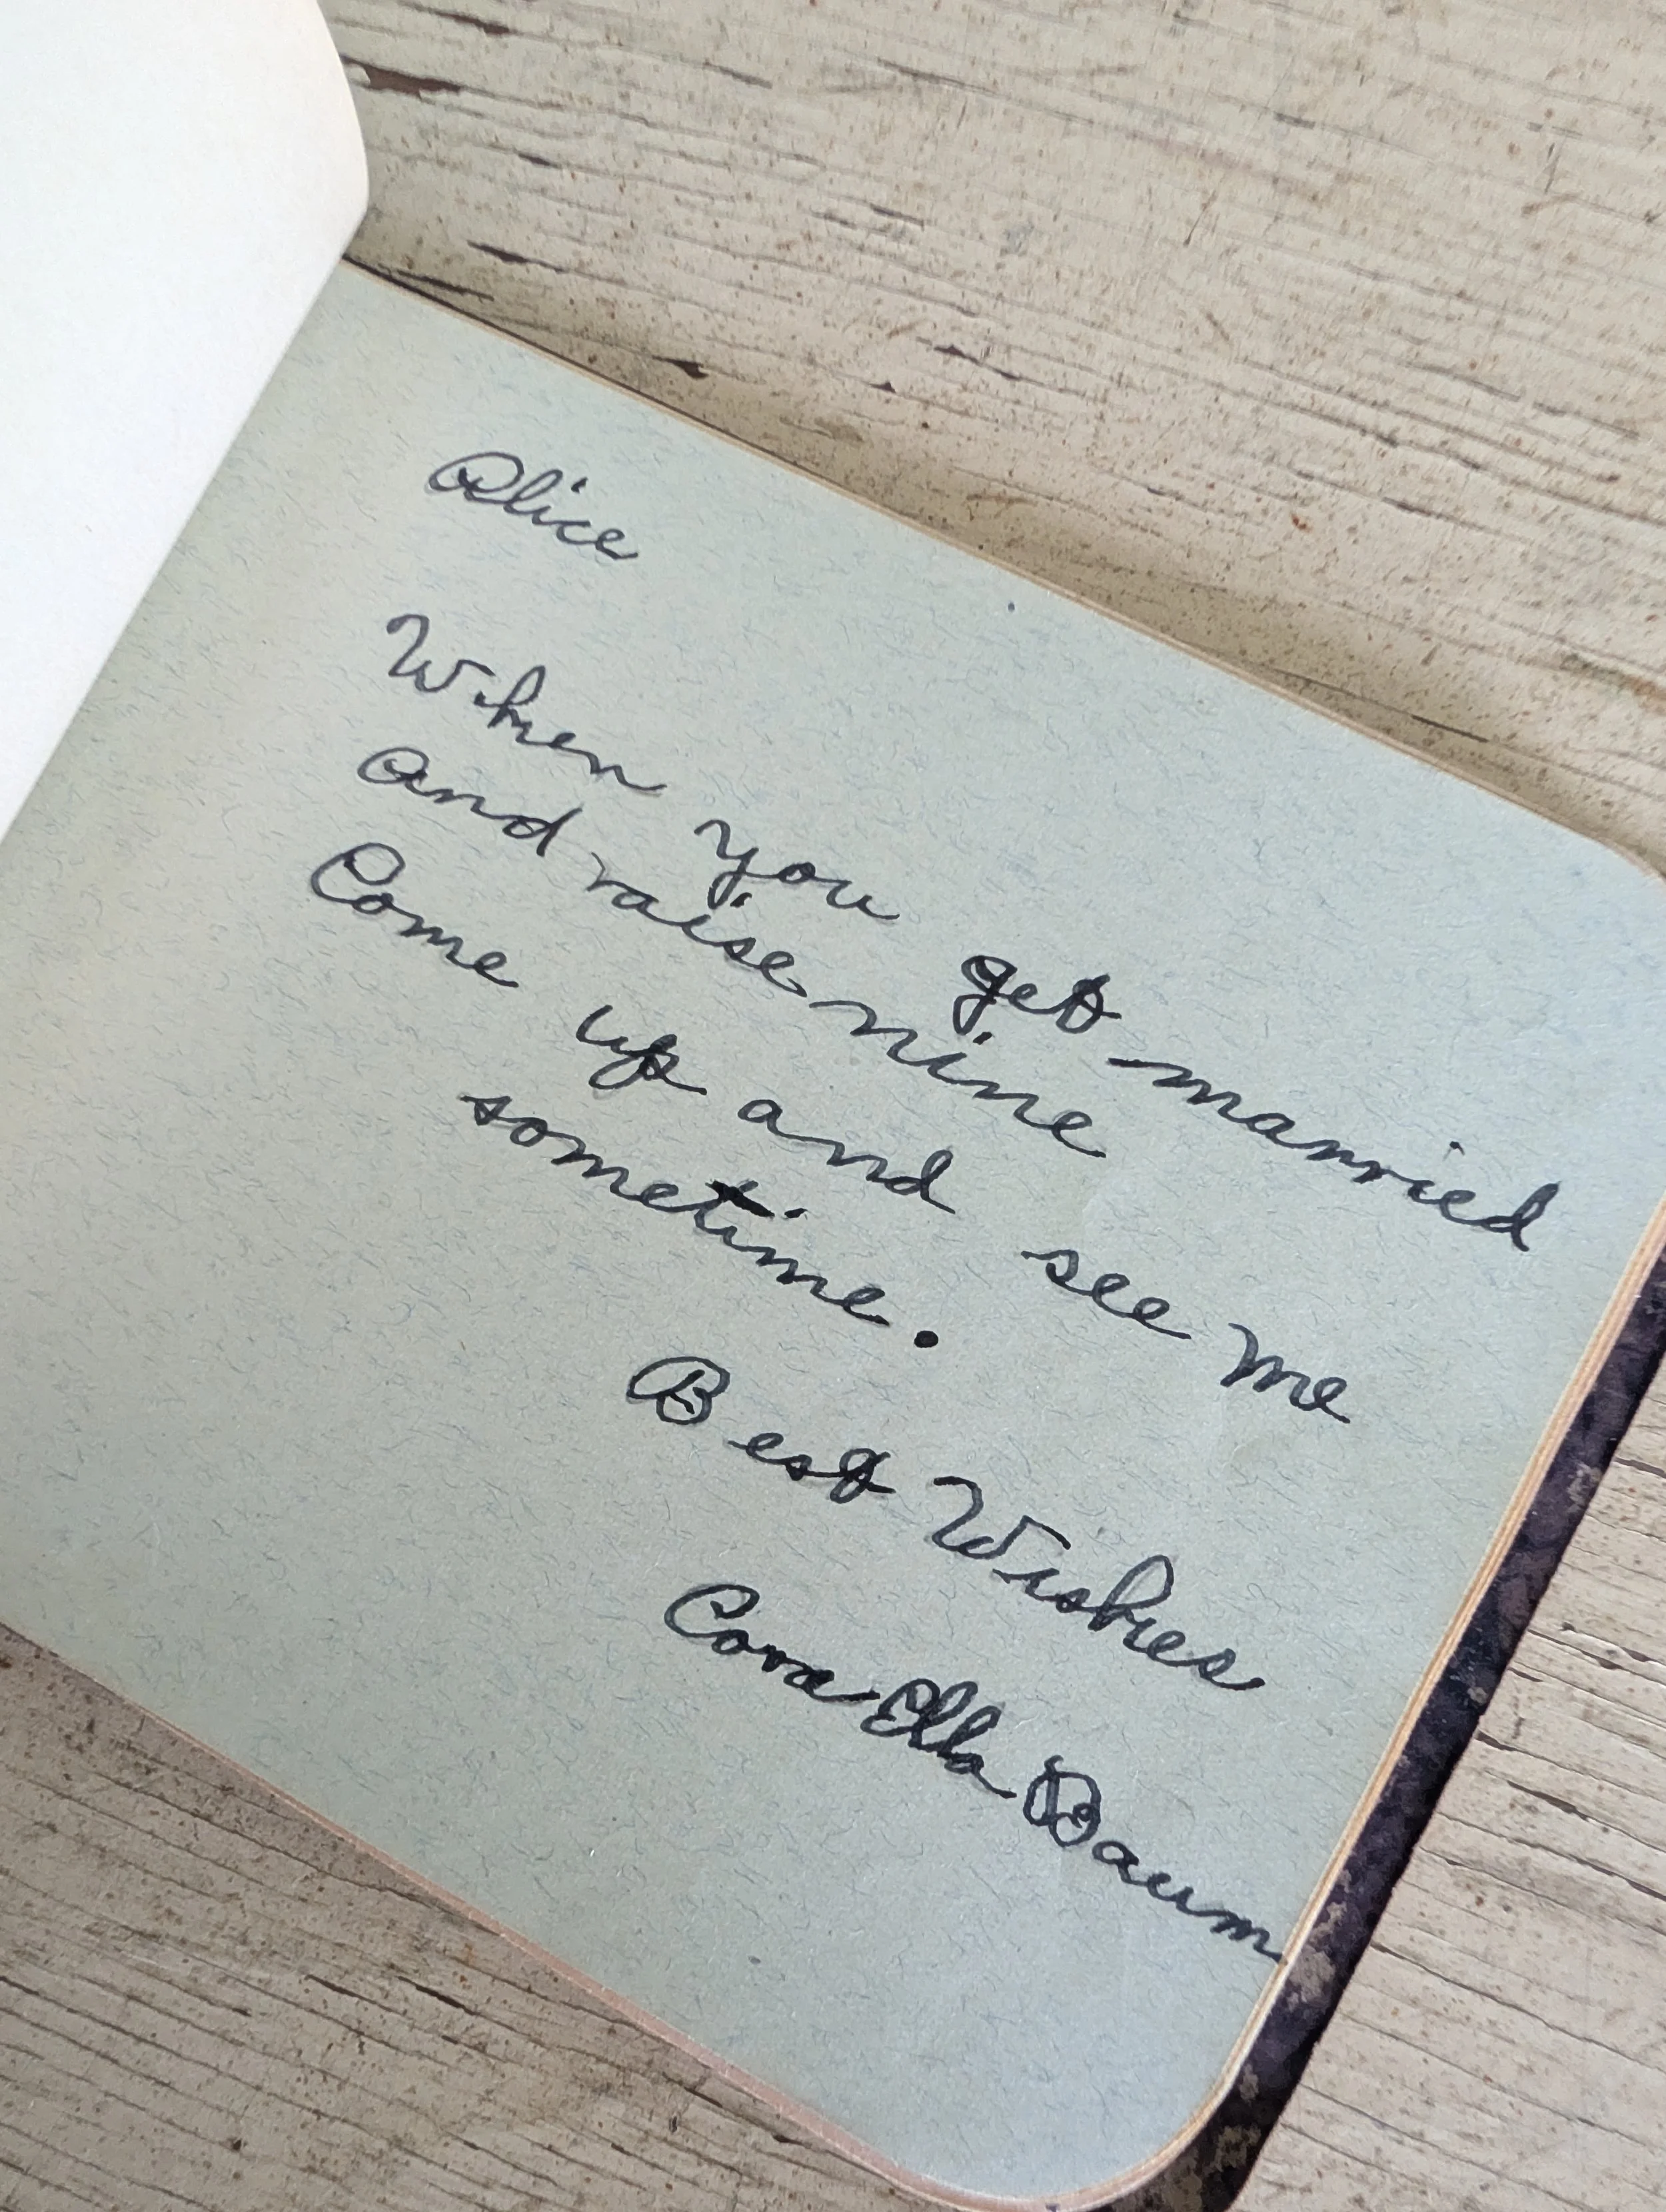 Alice
When you get married
And raise nine
Come up and see me
sometime.
Best Wishes
Cora Ella Baum